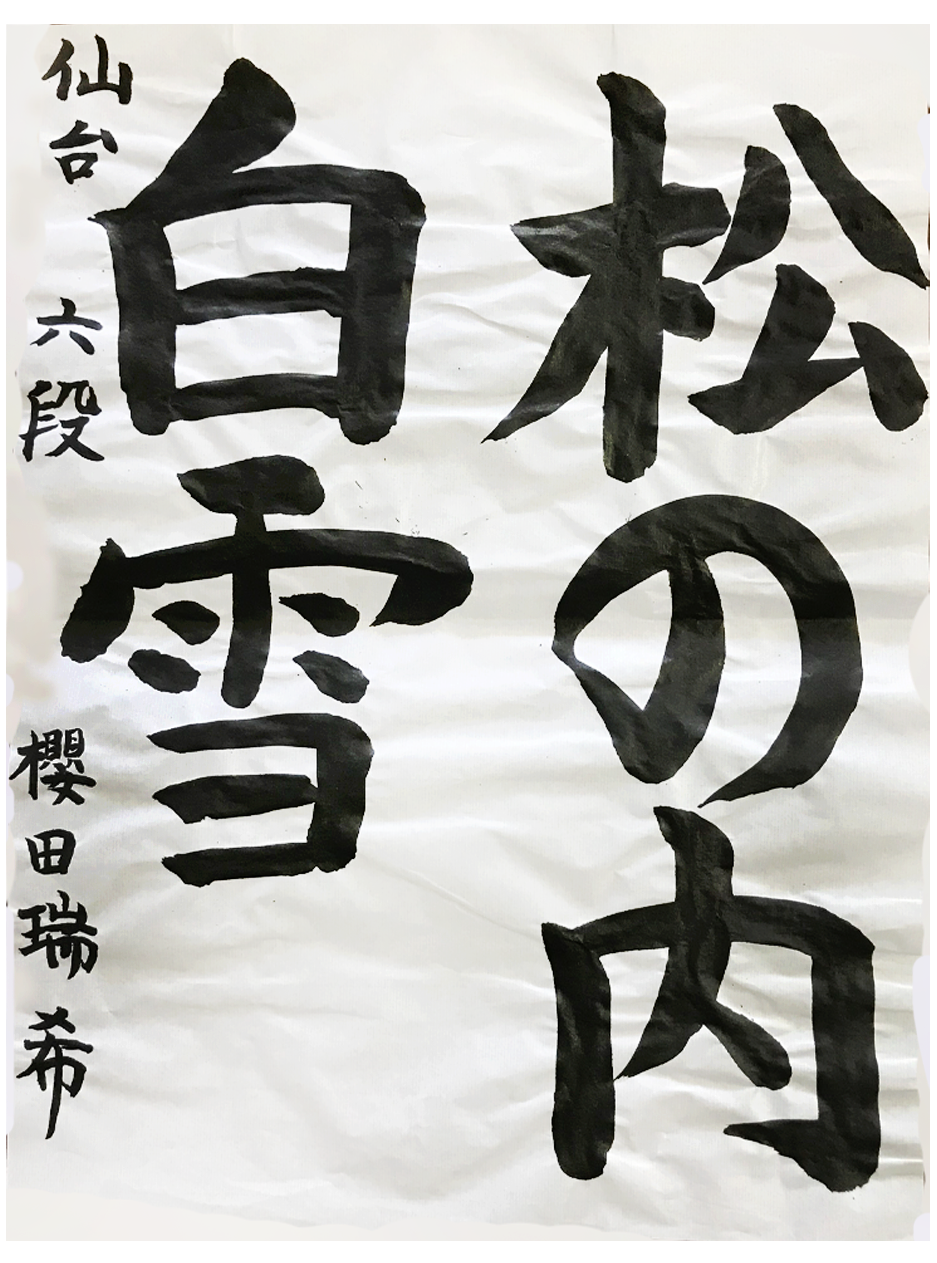 松の内
白雪
仙台 六段 櫻田瑞希